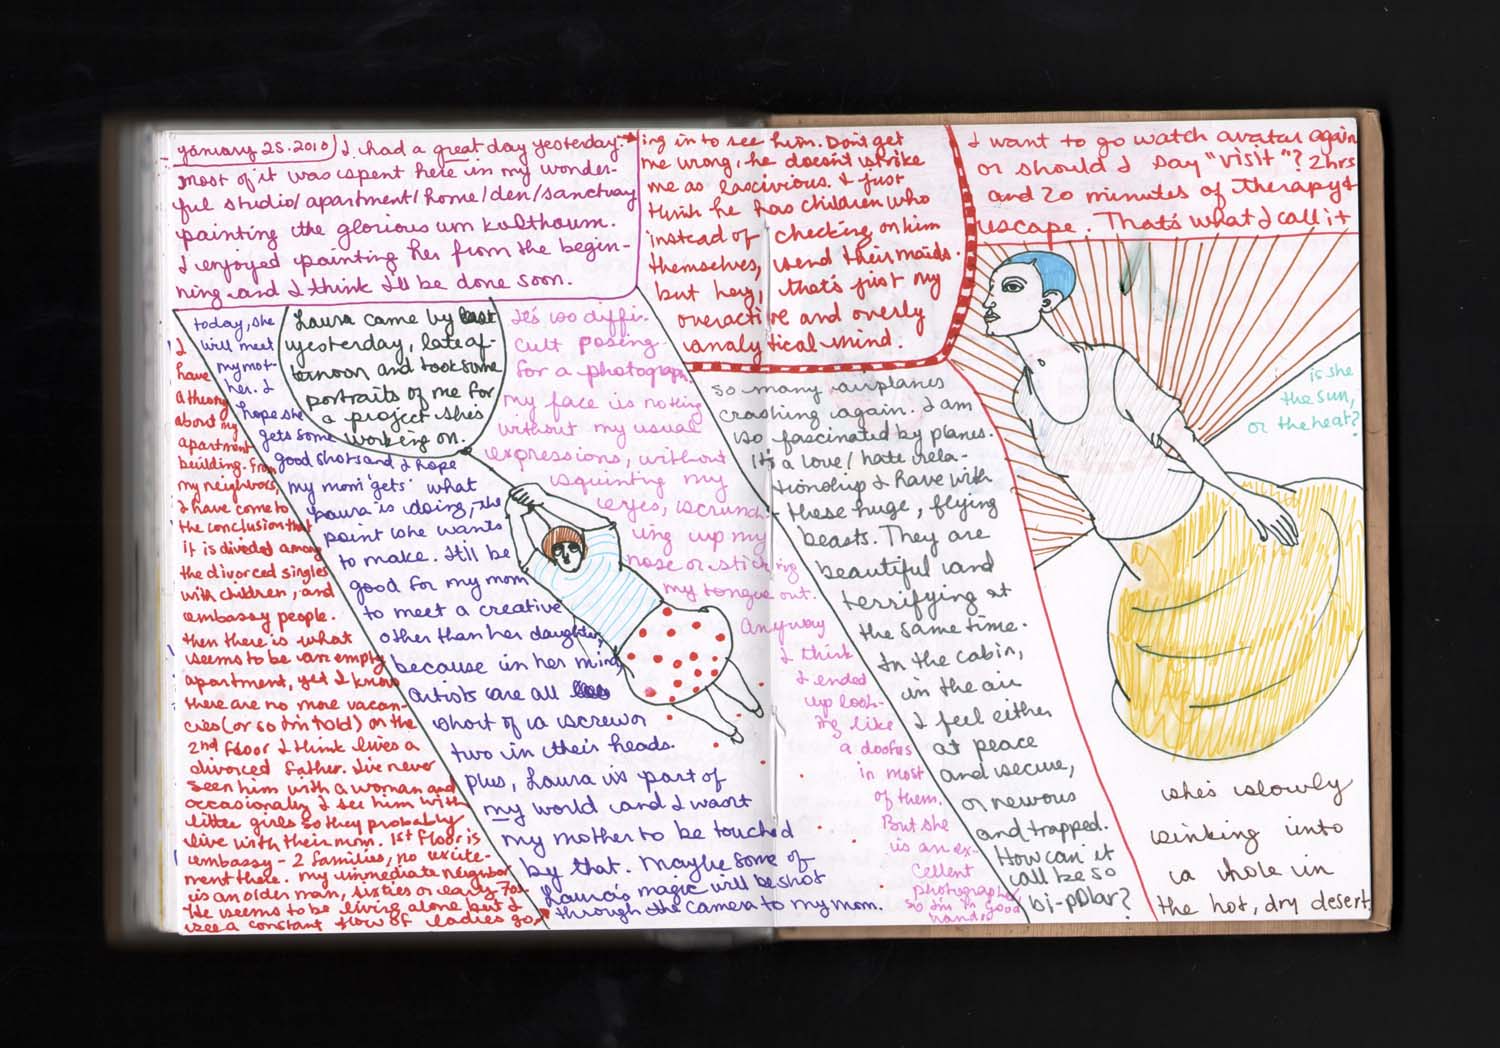 january 25. 2010
I had a great day yesterday.
most of it was spent here in my wonder-
ful studio/apartment/home/den/sanctuary
painting the glorious um kulthoum.
I enjoyed painting her from the begin-
ning and I think I'll be done soon.
Laura came by
yesterday, late af-
ternoon and took some
portraits of me for
a project she's
working on.
today, she
will meet
my mot-
her. I
hope she
gets some
good shots and I hope
my mom 'gets' what
Laura is doing, the
point she wants
to make. It'll be
good for my mom
to meet a creative
other than her daughter,
because in her mind,
artists are all
short of a screw or
two in their heads.
plus, Laura is part of
my world and I want
my mother to be touched
by that. Maybe some of
Laura's magic will be shot
through the camera to my mom.
It's so diffi-
cult posing
for a photograph.
my face is nothing
without my usual
expressions, without
squinting my
eyes, scrunch-
ing up my
nose or sticking
my tongue out.
Anyway
I think
I ended
up look-
ing like
a doofus
in most
of them.
But she
is an ex-
cellent
photographer
so I'm in good
hands.
I
have
a theory
about my
apartment
building. From
my neighbors,
I have come to
the conclusion that
it is divided among
the divorced singles
with children, and
embassy people.
then there is what
seems to be an empty
apartment, yet I know
there are no more vacan-
cies (or so I'm told) on the
2nd floor I think lives a
divorced father. I've never
seen him with a woman and
occasionally I see him with
little girls so they probably
live with their mom. 1st floor is
embassy - 2 families, no excite-
ment there. my immediate neighbor
is an older man, sixties or early 70s.
He seems to be living alone but I
see a constant flow of ladies go-
ing in to see him. Don't get
me wrong, he doesn't strike
me as lascivious. I just
think he has children who
instead of checking on him
themselves, send their maids.
but hey, that's just my
overactive and overly
analytical mind.
so many airplanes
crashing again. I am
so fascinated by planes.
It's a love/hate rela-
tionship I have with
these huge, flying
beasts. They are
beautiful and
terrifying at
the same time.
In the cabin,
in the air
I feel either
at peace
and secure,
or nervous
and trapped.
How can it
all be so
bi-polar?
I want to go watch avatar again
or should I say "visit"? 2 hrs
and 20 minutes of therapy &
escape. That's what I call it
is she
the sun,
or the heat?
she's slowly
sinking into
a hole in
the hot, dry desert